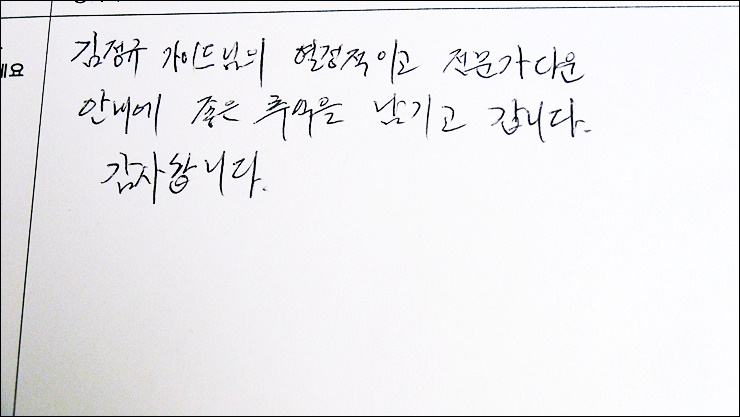 김정규 가이드님의 열정적이고 전문가다운
세요
안내에 좋은 추억을 남기고 갑니다.
감사합니다.